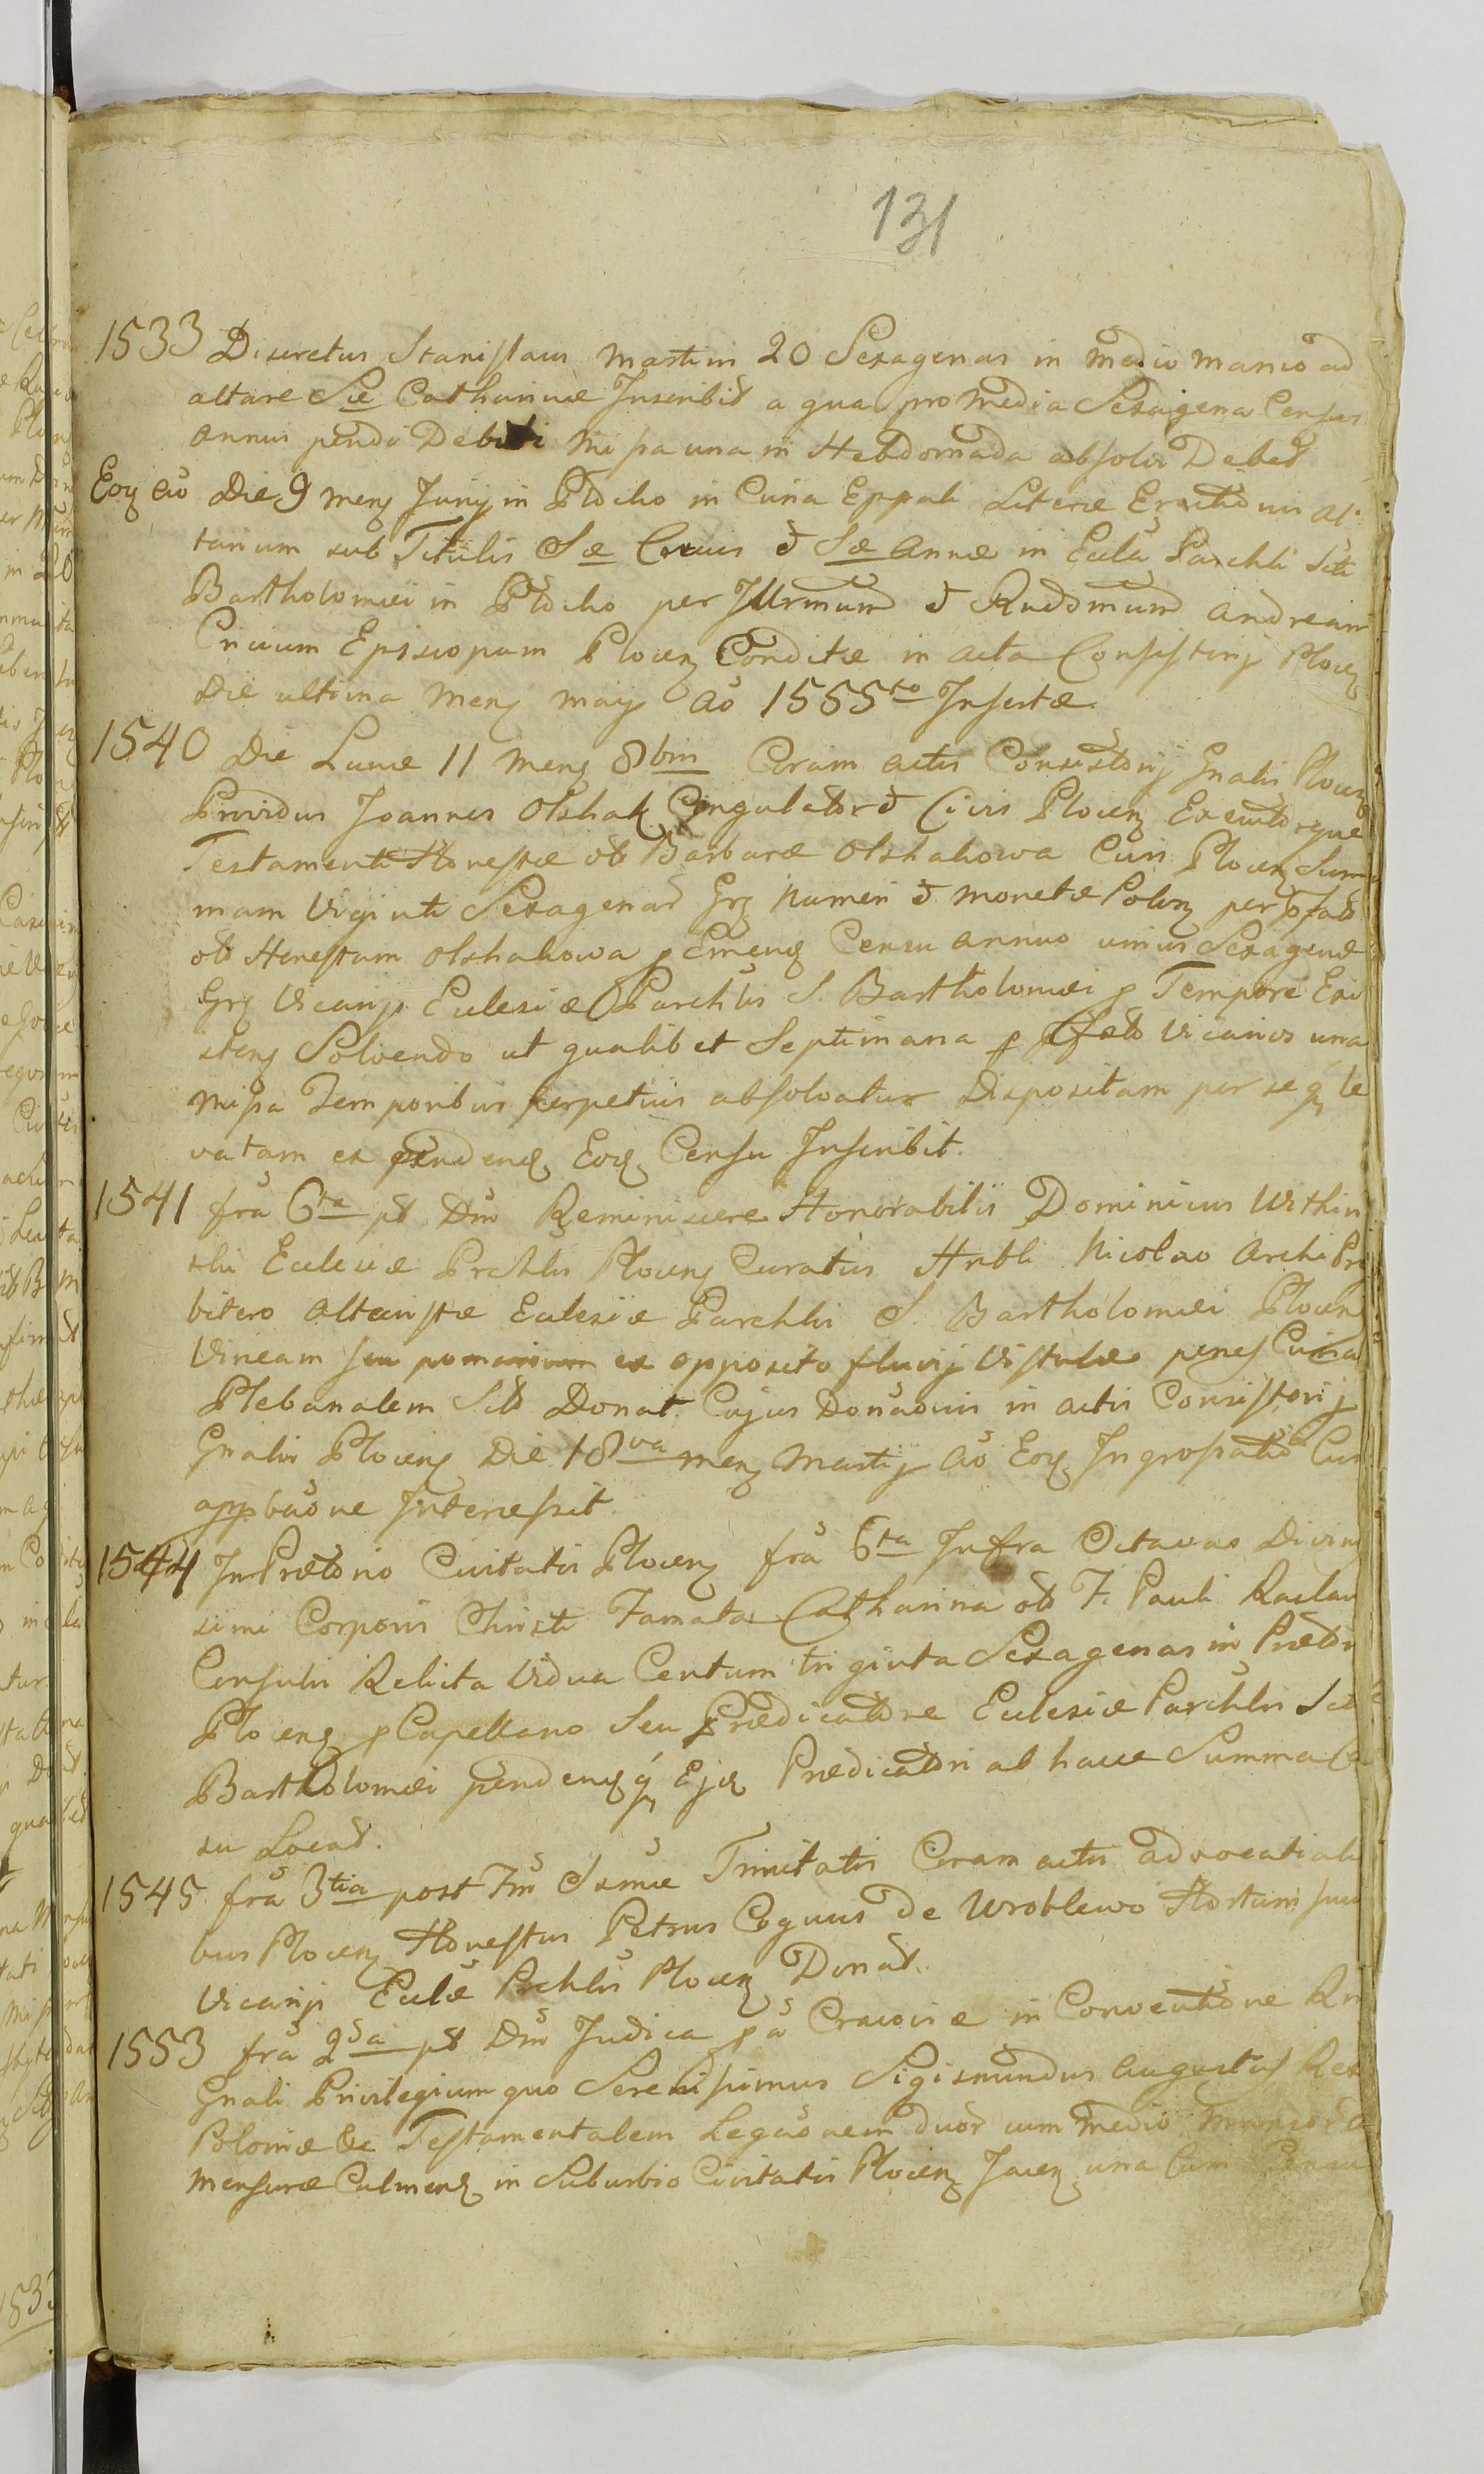 131
1533 Discretus Stanislaus Martini 20 Sexagenas in medio manso ad
altare Stæ Catharinæ Inscribit a qua pro media Sexagena Census
annui pendi Debiti Missa una in Hebdomada absolvi Debet
Eoq aō Die 9 mens Junij in Plocko in Curia Eppali Literæ Erectionis al
tarium sub Titulis Sæ Crucis et Sæ Annæ in Ecclā Parchli Sti
Bartholomæi in Plocko per Illrmum et Rndsmum Andream
Cricium Episcopum Plocen Conditæ in acta Consistorij Plocen
Die ultima mens maij aō 1555to Insertæ
1540 Die Lunæ 11 mens 8bris Coram actis Consistorij Gnalis Plocen
Providus Joannes Olshak Cingulator et Civis Plocen Executorque
Testamenti Honestæ ol Barbaræ Olshakowa Civis Plocen Sum
mam Viginti Sexagenar Grs Numeri et monetæ Polon per pfat
ol Honestam Olshakowa p Emend Censu annuo unius Sexagenæ
Grs Vicarijs Eclesiæ Parchlis S. Bartholomæi p Tempore Exi
sten Solvendo ut qualibet Septimana p pfato Vicarios una
missa Temporibus perpetuis absolvatur Dispositam per seq le
vatam ex pendend Eoq Censu Inscribit.
1541 frā 6ta pt Dm Reminiscere Honorabilis Dominicus Within
ski Eclesiæ Prchlis Plocens Curatus Hnbli Nicolao Archi Prs
bitero Altaristæ Eclesiæ Parchlis S. Bartholomæi Plocen
Vineam seu pomarium ex opposito fluvij Vistulæ penes Curia
Plebanalem Sit Donat. Cujus Donaōnis in actis Consistorij
Gnalis Plocens Die 18va mens Martij Aō Eoq Ingrossatio Cum
appbaōne Intercessit.
1544 In Prætorio Civitatis Plocen frā 6ta Infra Octavas Divinis
simi Corporis Christi Famata Catharina ol F. Pauli Raclau
Consulis Relicta Vidua Centum triginta Sexagenas in Prætori
Plocens p Capellano Seu Prædicatore Eclesiæ Parchlis Sti
Bartholomæi pendend q Ejq Prædicatori ab hacce Summa Ce
su Locat.
1545 frā 3tia post Fm Ssmæ Trinitatis Coram actis advocatiali
bus Plocen Honestus Petrus Coguus de Wroblewo Hortum suu
Vicarijs Eclæ Prchlis Plocen Donat.
1553 frā 2da pt Dm Judica pā Cracoviæ in Conventione Rni
Gnali Privilegium quo Serenissimus Sigismundus Augustus Rex
Poloniæ &c Testamentalem Legaōnem duor cum medio mansor
mensuræ Culmens in Suburbio Civitatis Plocen Jacen una Cum Censu